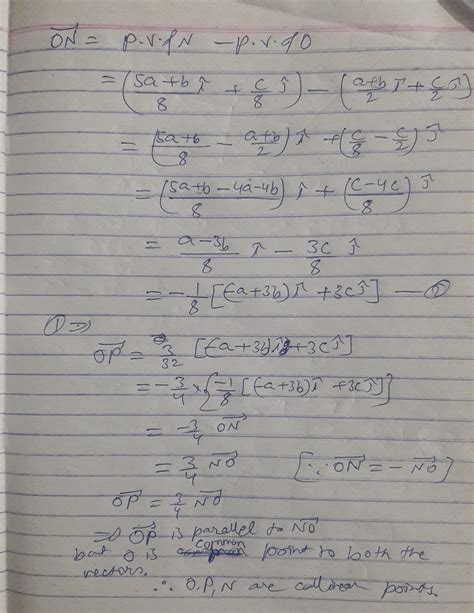 ON⃗ = p.v. of N - p.v. of O
= (5a+b/8 î + c/8 ĵ) - (a+b/2 î + c/2 ĵ)
= (5a+b/8 - a+b/2) î + (c/8 - c/2) ĵ
= (5a+b-4a-4b/8) î + (c-4c/8) ĵ
= a-3b/8 î - 3c/8 ĵ
= -1/8 [(-a+3b) î + 3c ĵ] — ②
① ⇒
OP⃗ = 3/32 [(-a+3b) î + 3c ĵ]
= -3/4 × {-1/8 [(-a+3b) î + 3c ĵ]}
= -3/4 ON⃗
= 3/4 NO⃗ [∵ ON⃗ = - NO⃗]
OP⃗ = 3/4 NO⃗
⇒ OP⃗ is parallel to NO⃗
but O is common point to both the
vectors.
∴ O,P,N are collinear points